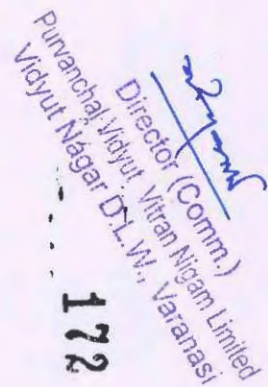 Director (Comm.)
Purvanchal Vidyut Vitran Nigam Limited
Vidyut Nagar D.L.W., Varanasi
172